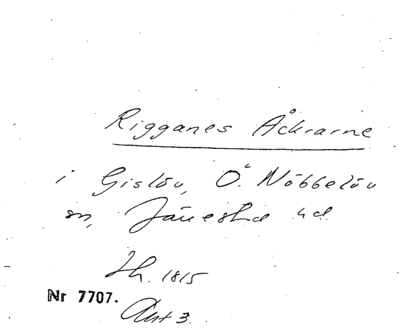 Rigganes Åkrarne
i Gislöv, Ö. Nöbbelöv
sn, Järrestad hd.
Sh. 1815
Nr 7707.
Akt 3.